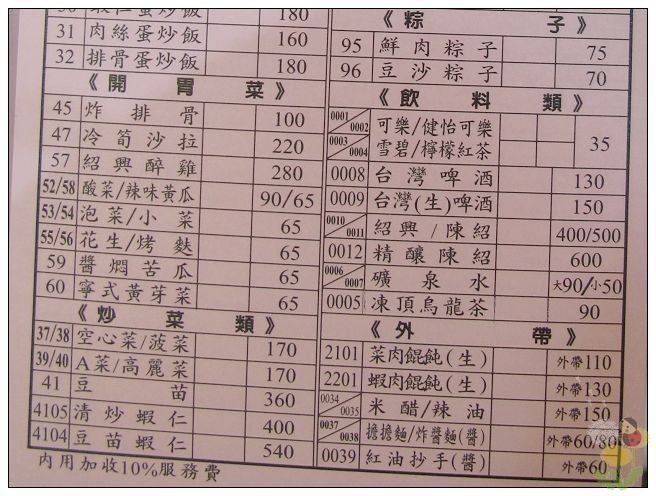 180
31 肉絲蛋炒飯 160
32 排骨蛋炒飯 180
《開胃菜》
45 炸排骨 100
47 冷筍沙拉 220
57 紹興醉雞 280
52/58 酸菜/辣味黃瓜 90/65
53/54 泡菜/小菜 65
55/56 花生/烤麩 65
59 醬燜苦瓜 65
60 寧式黃芽菜 65
《炒菜類》
37/38 空心菜/菠菜 170
39/40 A菜/高麗菜 170
41 豆苗 360
4105 清炒蝦仁 400
4104 豆苗蝦仁 540
內用加收10%服務費
《粽子》
95 鮮肉粽子 75
96 豆沙粽子 70
《飲料類》
0001/0002 可樂/健怡可樂 35
0003/0004 雪碧/檸檬紅茶
0008 台灣啤酒 130
0009 台灣(生)啤酒 150
0010/0011 紹興/陳紹 400/500
0012 精釀陳紹 600
0006/0007 礦泉水 大90/小50
0005 凍頂烏龍茶 90
《外帶》
2101 菜肉餛飩(生) 外帶110
2201 蝦肉餛飩(生) 外帶130
0034/0035 米醋/辣油 外帶150
0037/0038 擔擔麵/炸醬麵(醬) 外帶60/80
0039 紅油抄手(醬) 外帶60